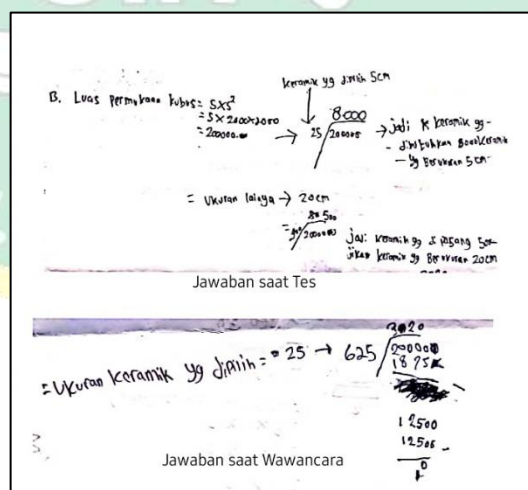 keramik yg dipilih 5cm
B. Luas permukaan kubus = 5xs²
= 5 x 200x200
= 200000
→ 25 / 200000
8000
→ jadi keramik yg
dibutuhkan 8000 keramik
yg berukuran 5cm
= Ukuran lainya → 20cm
500
= / 200000
jadi keramik yg di pasang 500
jika keramik yg berukuran 20cm
Jawaban saat Tes
= Ukuran keramik yg dipilih = 25 → 625 / 200000
1875
12500
12500
0
Jawaban saat Wawancara